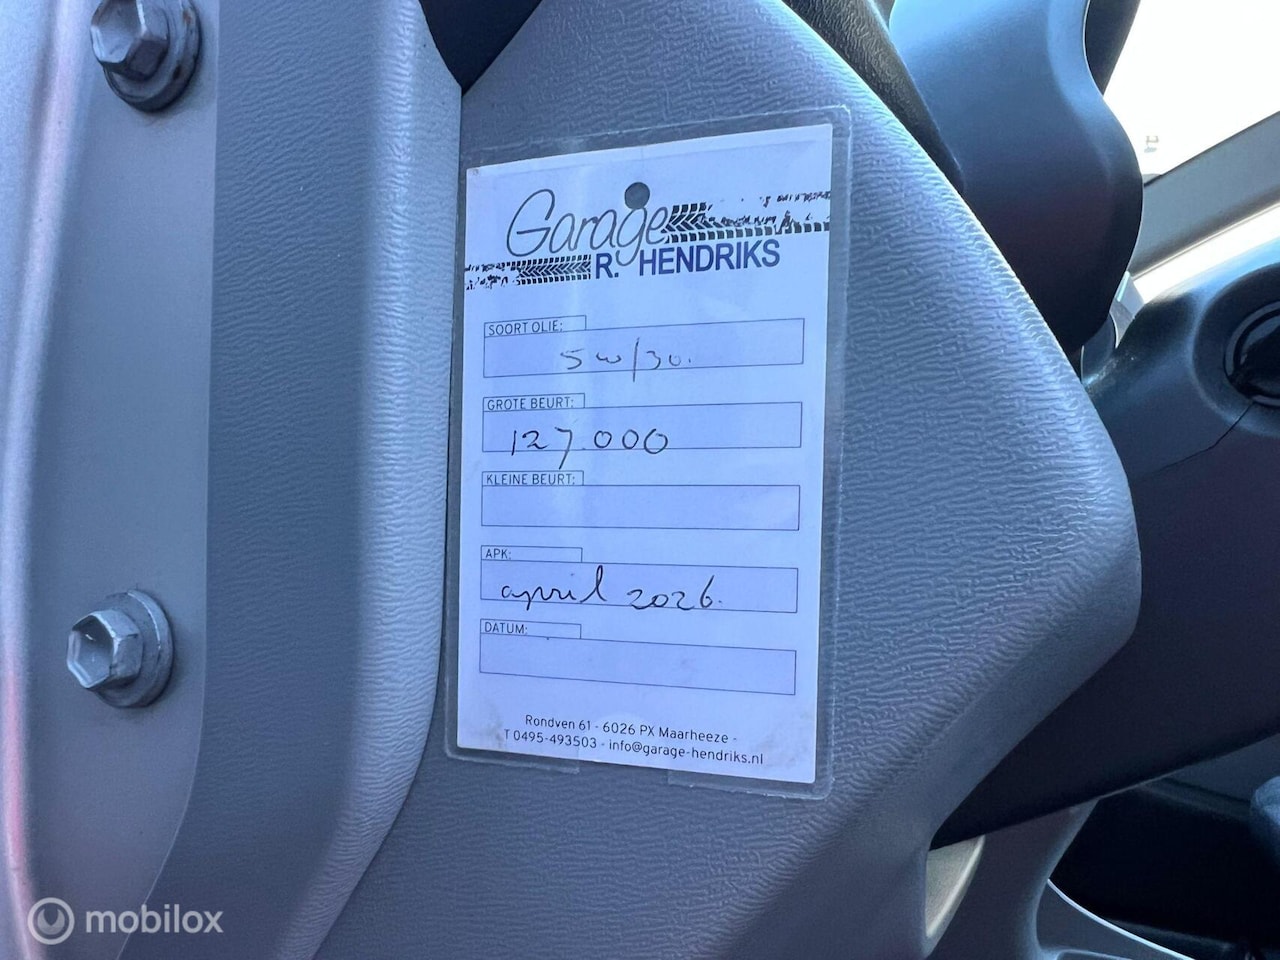 Garage
R. HENDRIKS
SOORT OLIE:
5w/30.
GROTE BEURT:
127.000
KLEINE BEURT:
APK:
april 2026.
DATUM:
Rondven 61 - 6026 PX Maarheeze -
T 0495-493503 - info@garage-hendriks.nl
mobilox